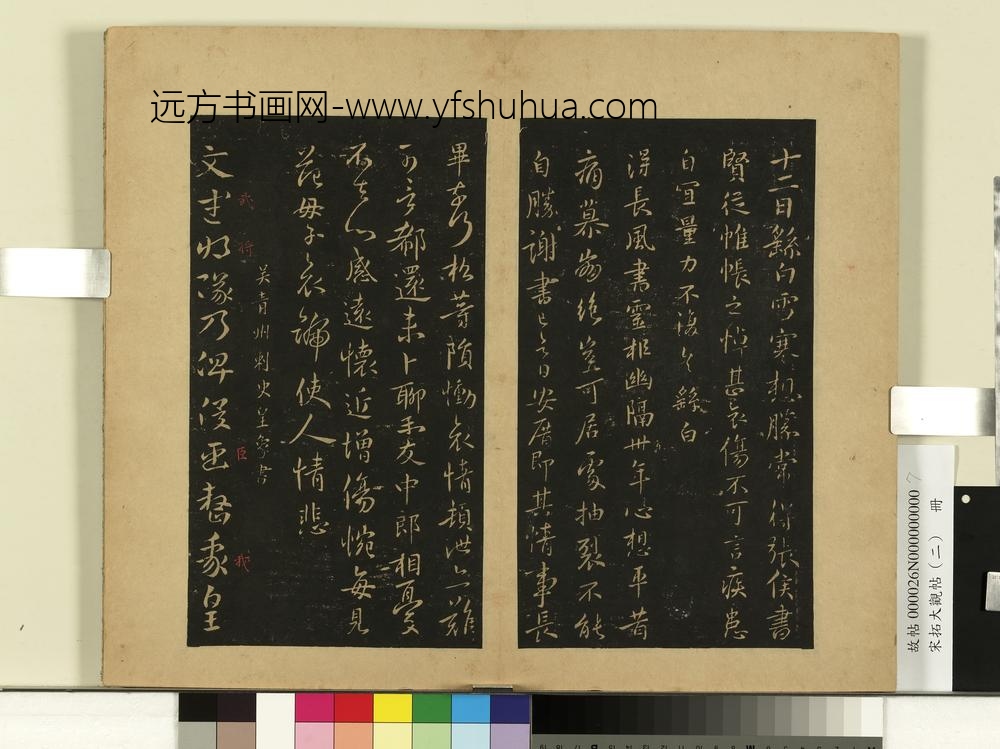 远方书画网-www.yfshuhua.com
十二日繇白雪寒想勝常得張侯書
賢從帷帳之悼甚哀傷不可言疾患
自宜量力不復具繇白
得長風書靈柩幽隔卅年心想平昔
痛慕崩絕豈可居處抽裂不能
自勝謝書已令日安厝即其情事長
畢
等隕慟哀情頓泄亦難
可言都還未卜聊
中郎相憂
不去心感遠懷近增傷惋每見
范母子哀號使人情悲
吳青州刺史皇象書
文武將隊乃俾
皇
武
將
臣
我
故帖000026N000000000 7
宋拓大觀帖(二) 冊